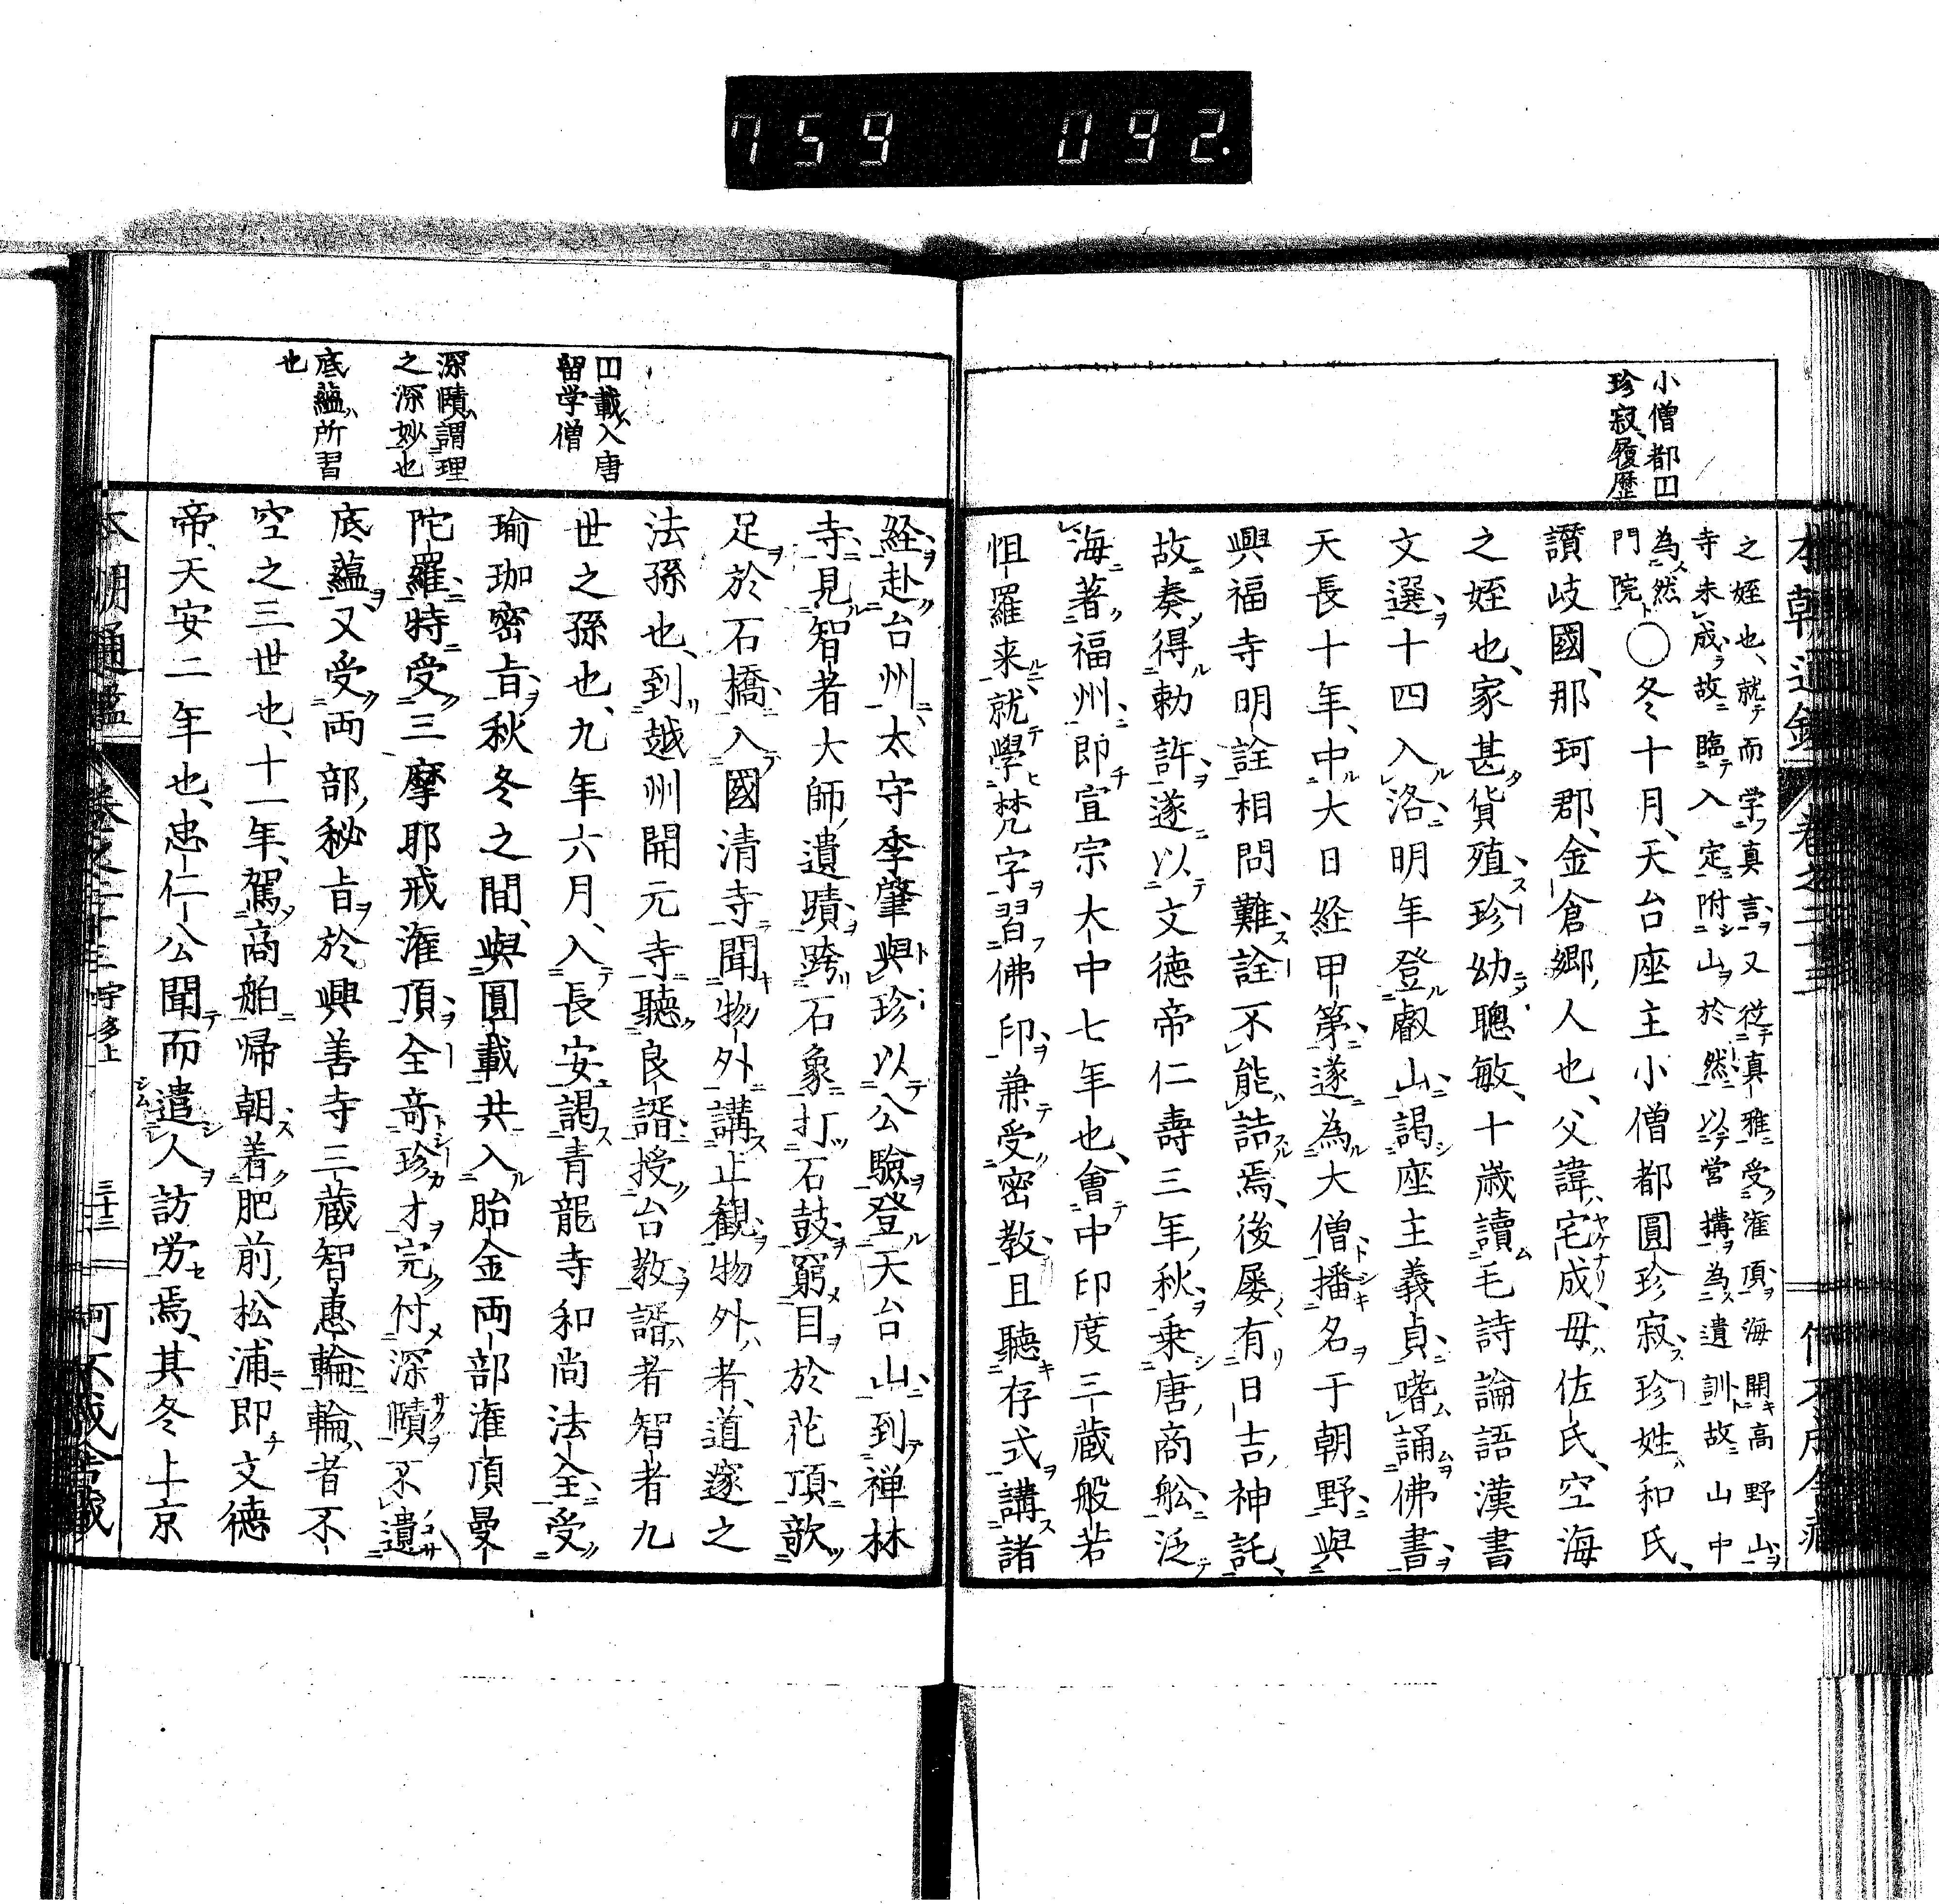 759 092.
小僧都円
珍寂履歴
之姪也就而学真言又從真雅受潅頂海開高野山
寺未成故臨入定附山於然以営構為遺訓故山中
為然
門院〇冬十月天台座主小僧都圓珍寂珍姓和氏
讃岐國那珂郡金倉郷人也父諱宅成母佐氏空海
之姪也家甚貨殖珍幼聰敏十歳讀毛詩論語漢書
文選十四入洛明年登叡山謁座主義貞嗜誦佛書
天長十年中大日経甲第遂為大僧播名于朝野與
興福寺明詮相問難詮不能詰焉後屡有日吉神託
故奏得勅許遂以文徳帝仁壽三年秋乗唐商舩泛
海著福州即宣宗大中七年也會中印度三蔵般若
怛羅来就學梵字習佛印兼受密教且聽存式講諸
円載入唐
留学僧
深賾謂理
之深妙也
底蘊所習
也
経赴台州太守李肇與珍以公驗登天台山到禅林
寺見智者大師遺蹟跨石象打石鼓窮目於花頂歇
足於石橋入國清寺聞物外講止観物外者道邃之
法孫也到越州開元寺聽良諝授台教諝者智者九
世之孫也九年六月入長安謁青龍寺和尚法全受
瑜珈密旨秋冬之間與圓載共入胎金両部潅頂曼
陀羅特受三摩耶戒潅頂全竒珍才完付深賾不遺
底蘊又受両部秘旨於興善寺三蔵智惠輪輪者不
空之三世也十一年駕商舶帰朝着肥前松浦即文徳
帝天安二年也忠仁公聞而遣人訪労焉其冬上京
本朝通鑑 巻之二十三 宇多上 三十二 可不成舎蔵